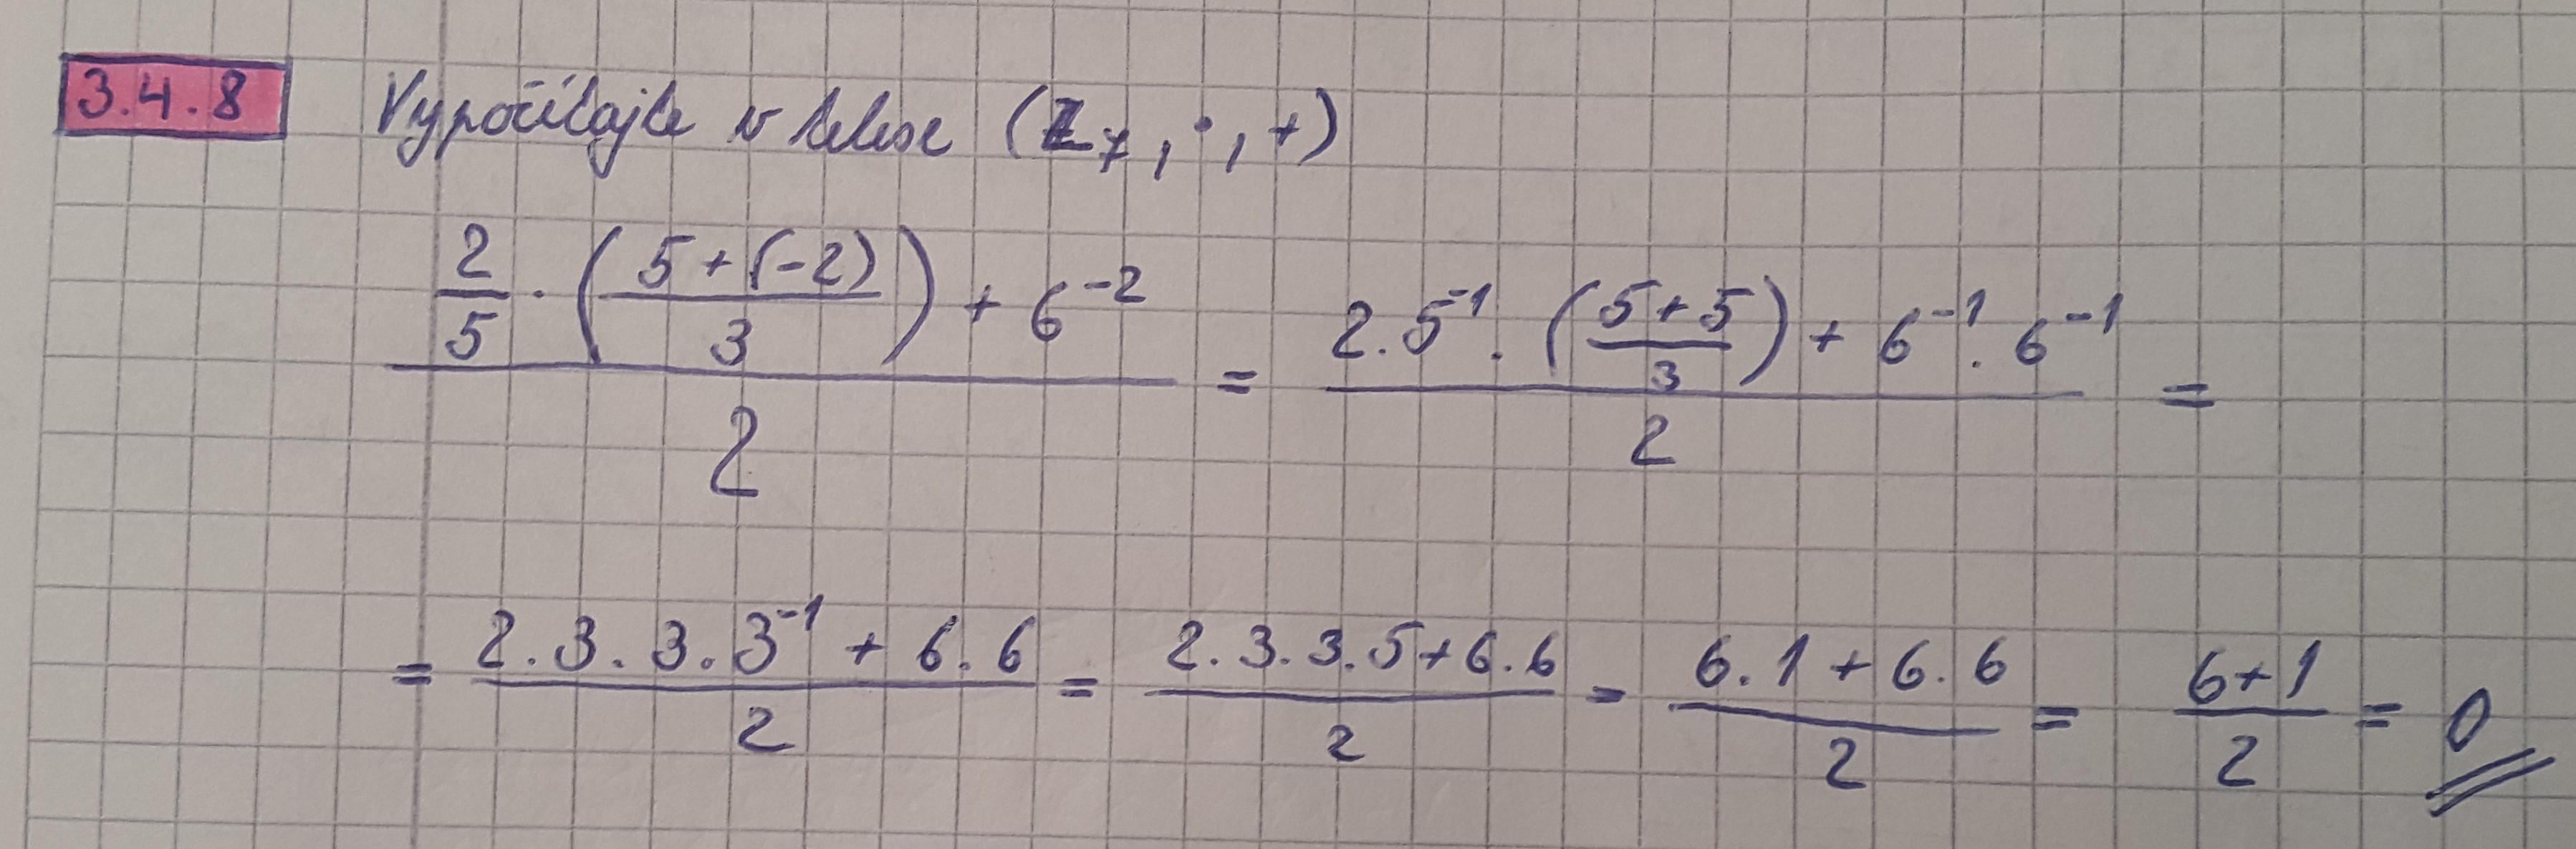 3.4.8 Vypočítajte v telese (Z₇, ·, +)
\frac{\frac{2}{5} · (\frac{5+(-2)}{3}) + 6^{-2}}{2} = \frac{2.5^{-1}.(\frac{5+5}{3}) + 6^{-1}.6^{-1}}{2} =
= \frac{2.3.3.3^{-1} + 6.6}{2} = \frac{2.3.3.5+6.6}{2} = \frac{6.1+6.6}{2} = \frac{6+1}{2} = 0